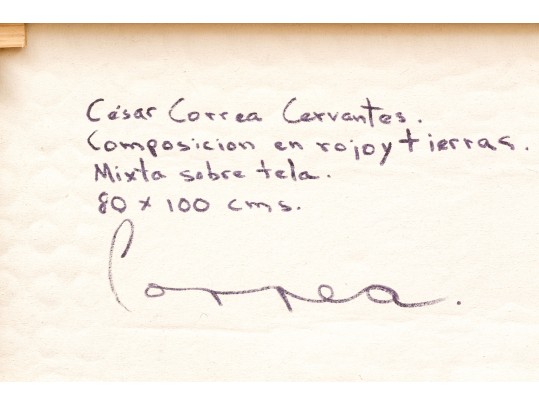 César Correa Cervantes.
Composicion en rojo y tierras.
Mixta sobre tela.
80 x 100 cms.
Correa.